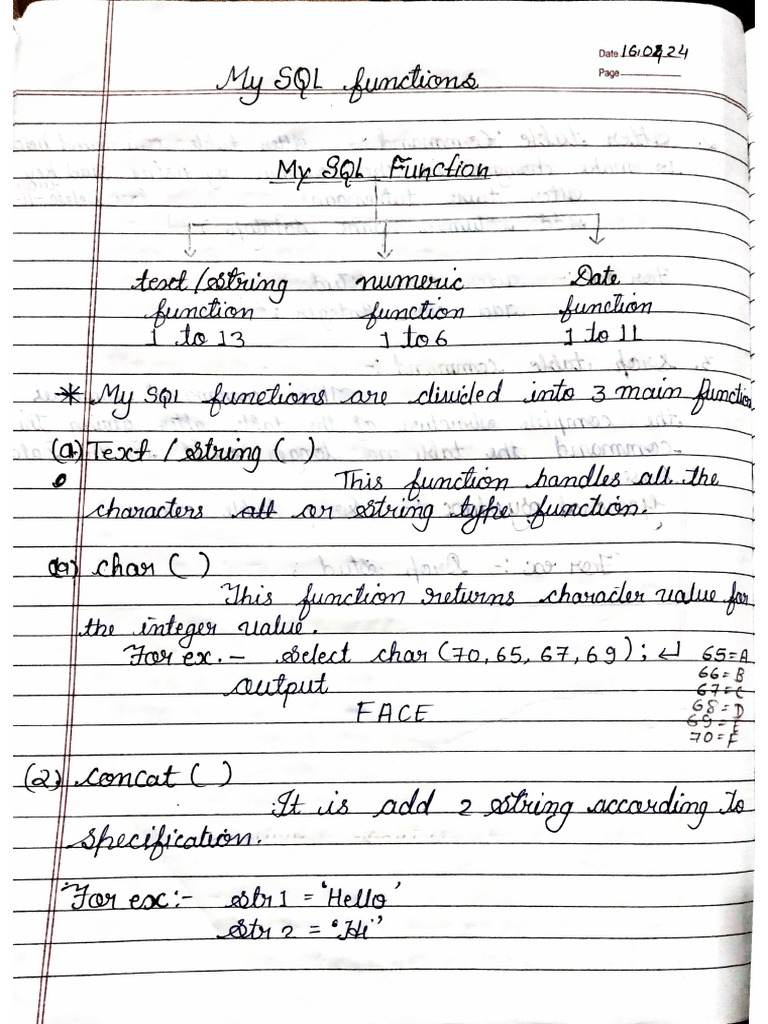 Date 16.02.24
Page
My SQL functions
My SQL Function
text/string numeric Date
function function function
1 to 13 1 to 6 1 to 11
* My SQL functions are divided into 3 main function
(a) Text / string ( )
This function handles all the
characters all or string type function.
(a) char ( )
This function returns character value for
the integer value.
For ex. - select char (70, 65, 67, 69) ; ↵ 65=A
66=B
output 67=C
68=D
FACE 69=E
70=F
(2) concat ( )
It is add 2 string according to
specification.
For ex:- str 1 = 'Hello'
str 2 = "Hi"